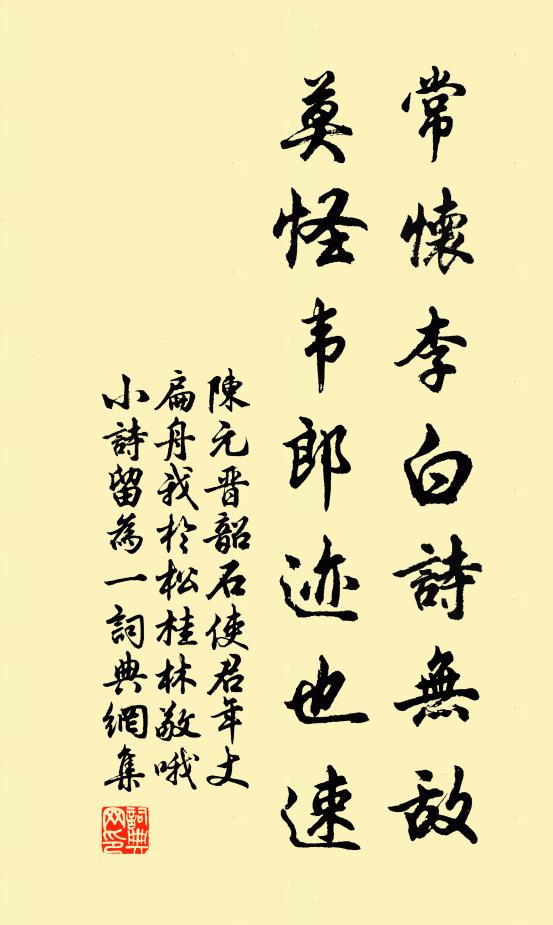 常懷李白詩無敵
莫怪韦郎迹也速
陳元晋韶石使君年丈
扁舟我於松桂林敬哦
小詩留為一詞典網集
詞典網印